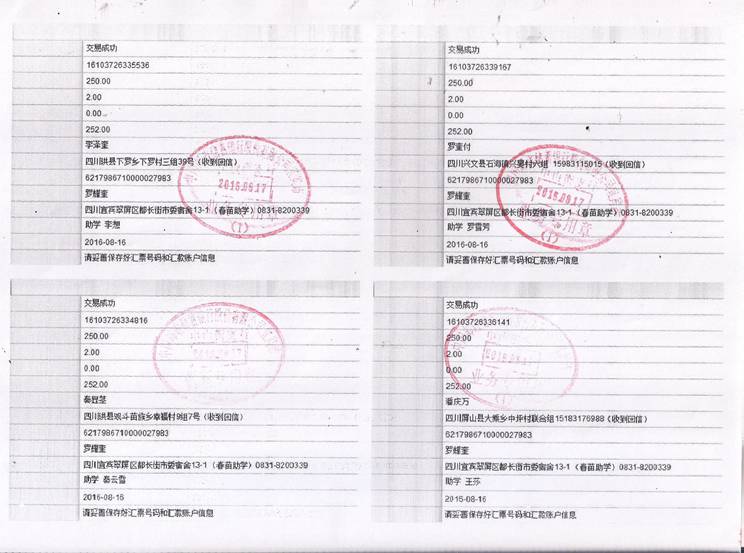 交易成功
16103726335536
250.00
2.00
0.00
252.00
李泽奎
四川珙县下罗乡下罗村三组39号（收到回信）
6217986710000027983
罗耀奎
四川宜宾翠屏区都长街市委宿舍13-1（春苗助学）0831-8200339
助学 李想
2016-08-16
请妥善保存好汇票号码和汇款账户信息
2016.09.17
(1)
交易成功
16103726339167
250.00
2.00
0.00
252.00
罗奎付
四川兴文县石海镇兴晏村六组 15983115015（收到回信）
6217986710000027983
罗耀奎
四川宜宾翠屏区都长街市委宿舍13-1（春苗助学）0831-8200339
助学 罗雪芳
2016-08-16
请妥善保存好汇票号码和汇款账户信息
2016.09.17
用章
(1)
交易成功
16103726334816
250.00
2.00
0.00
252.00
四川珙县观斗苗族乡幸福村9组7号（收到回信）
6217986710000027983
罗耀奎
四川宜宾翠屏区都长街市委宿舍13-1（春苗助学）0831-8200339
助学 秦云雪
2016-08-16
请妥善保存好汇票号码和汇款账户信息
交易成功
16103726336141
250.00
2.00
0.00
252.00
潘庆万
四川屏山县大乘乡中坪村联合组15183176988（收到回信）
6217986710000027983
罗耀奎
四川宜宾翠屏区都长街市委宿舍13-1（春苗助学）0831-8200339
助学 王莎
2016-08-16
请妥善保存好汇票号码和汇款账户信息
2016.09.17
业务